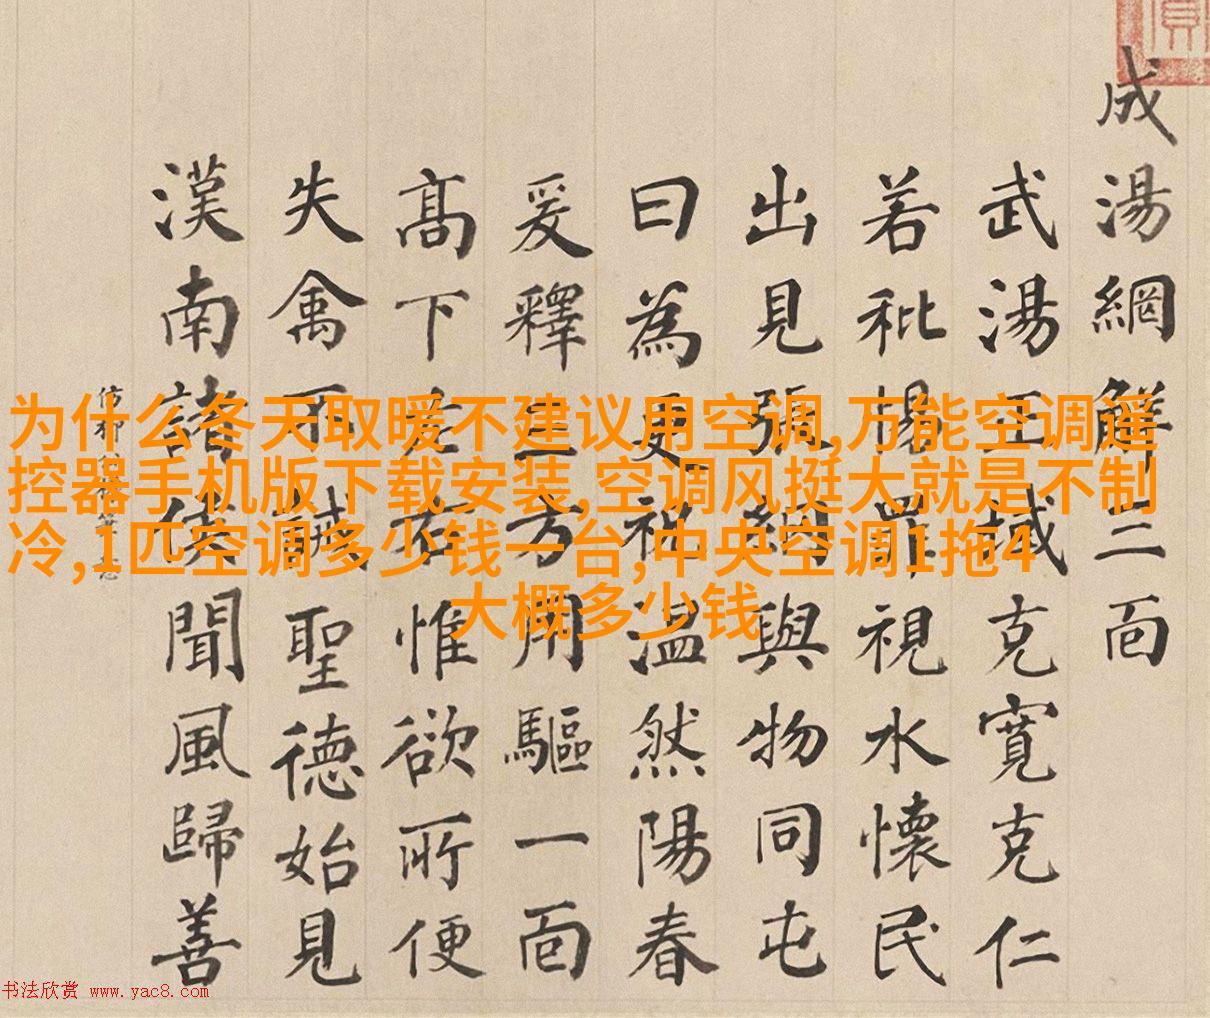 为什么冬天取暖不建议用空调,万能空调遥
控器手机版下载安装,空调风挺大就是不制
冷,1匹空调多少钱一台,中央空调1拖4
大概多少钱
成湯網解三面
武湯正域克寬克仁
若秕惕罪視水懷民
出見張網與物同屯
曰為更祝溫然陽春
爰釋三方用驅一面
高下左右惟欲所便
失禽不誡聖德始見
漢南諸侯聞風歸善
书法欣赏 www.yac8.com